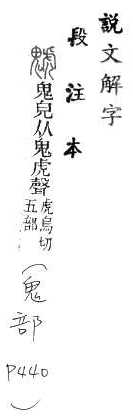 說文解字
段注本
䰧鬼皃从鬼虎聲虎烏切五部
(鬼部 P440)